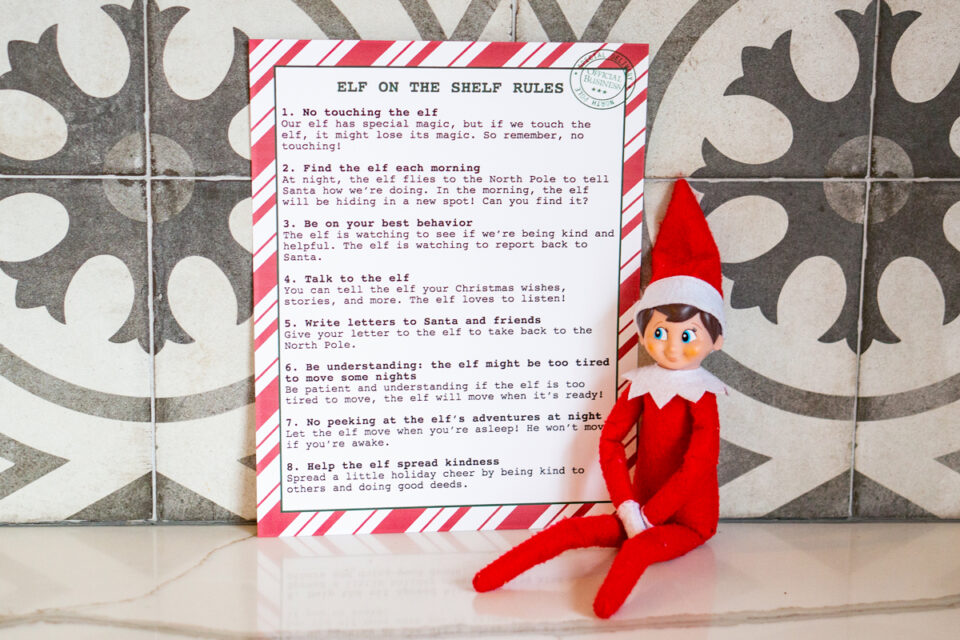 ELF ON THE SHELF RULES
POSTAL DELIVERY
OFFICIAL
BUSINESS
NORTH POLE
1. No touching the elf
Our elf has special magic, but if we touch the
elf, it might lose its magic. So remember, no
touching!
2. Find the elf each morning
At night, the elf flies to the North Pole to tell
Santa how we're doing. In the morning, the elf
will be hiding in a new spot! Can you find it?
3. Be on your best behavior
The elf is watching to see if we're being kind and
helpful. The elf is watching to report back to
Santa.
4. Talk to the elf
You can tell the elf your Christmas wishes,
stories, and more. The elf loves to listen!
5. Write letters to Santa and friends
Give your letter to the elf to take back to the
North Pole.
6. Be understanding: the elf might be too tired
to move some nights
Be patient and understanding if the elf is too
tired to move, the elf will move when it's ready!
7. No peeking at the elf's adventures at night
Let the elf move when you're asleep! He won't move
if you're awake.
8. Help the elf spread kindness
Spread a little holiday cheer by being kind to
others and doing good deeds.